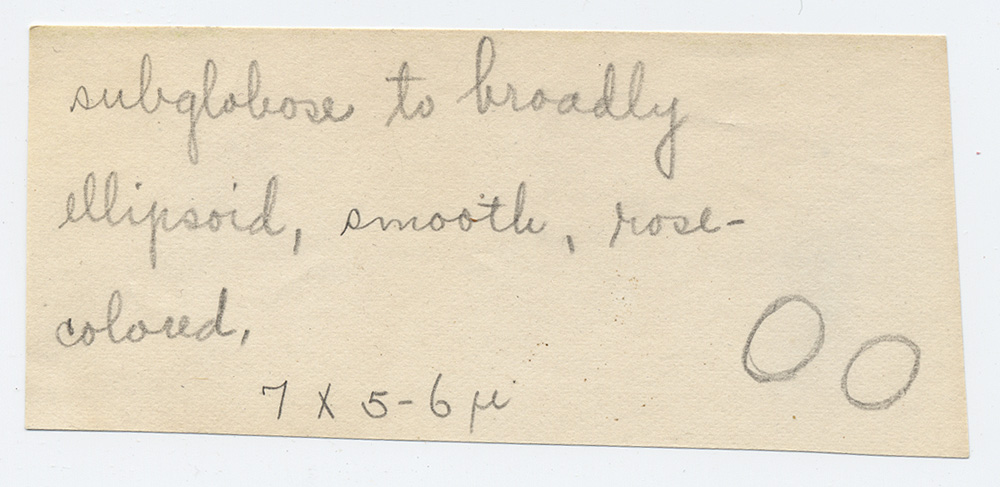 subglobose to broadly
ellipsoid, smooth, rose-
colored,
7 X 5-6 µ